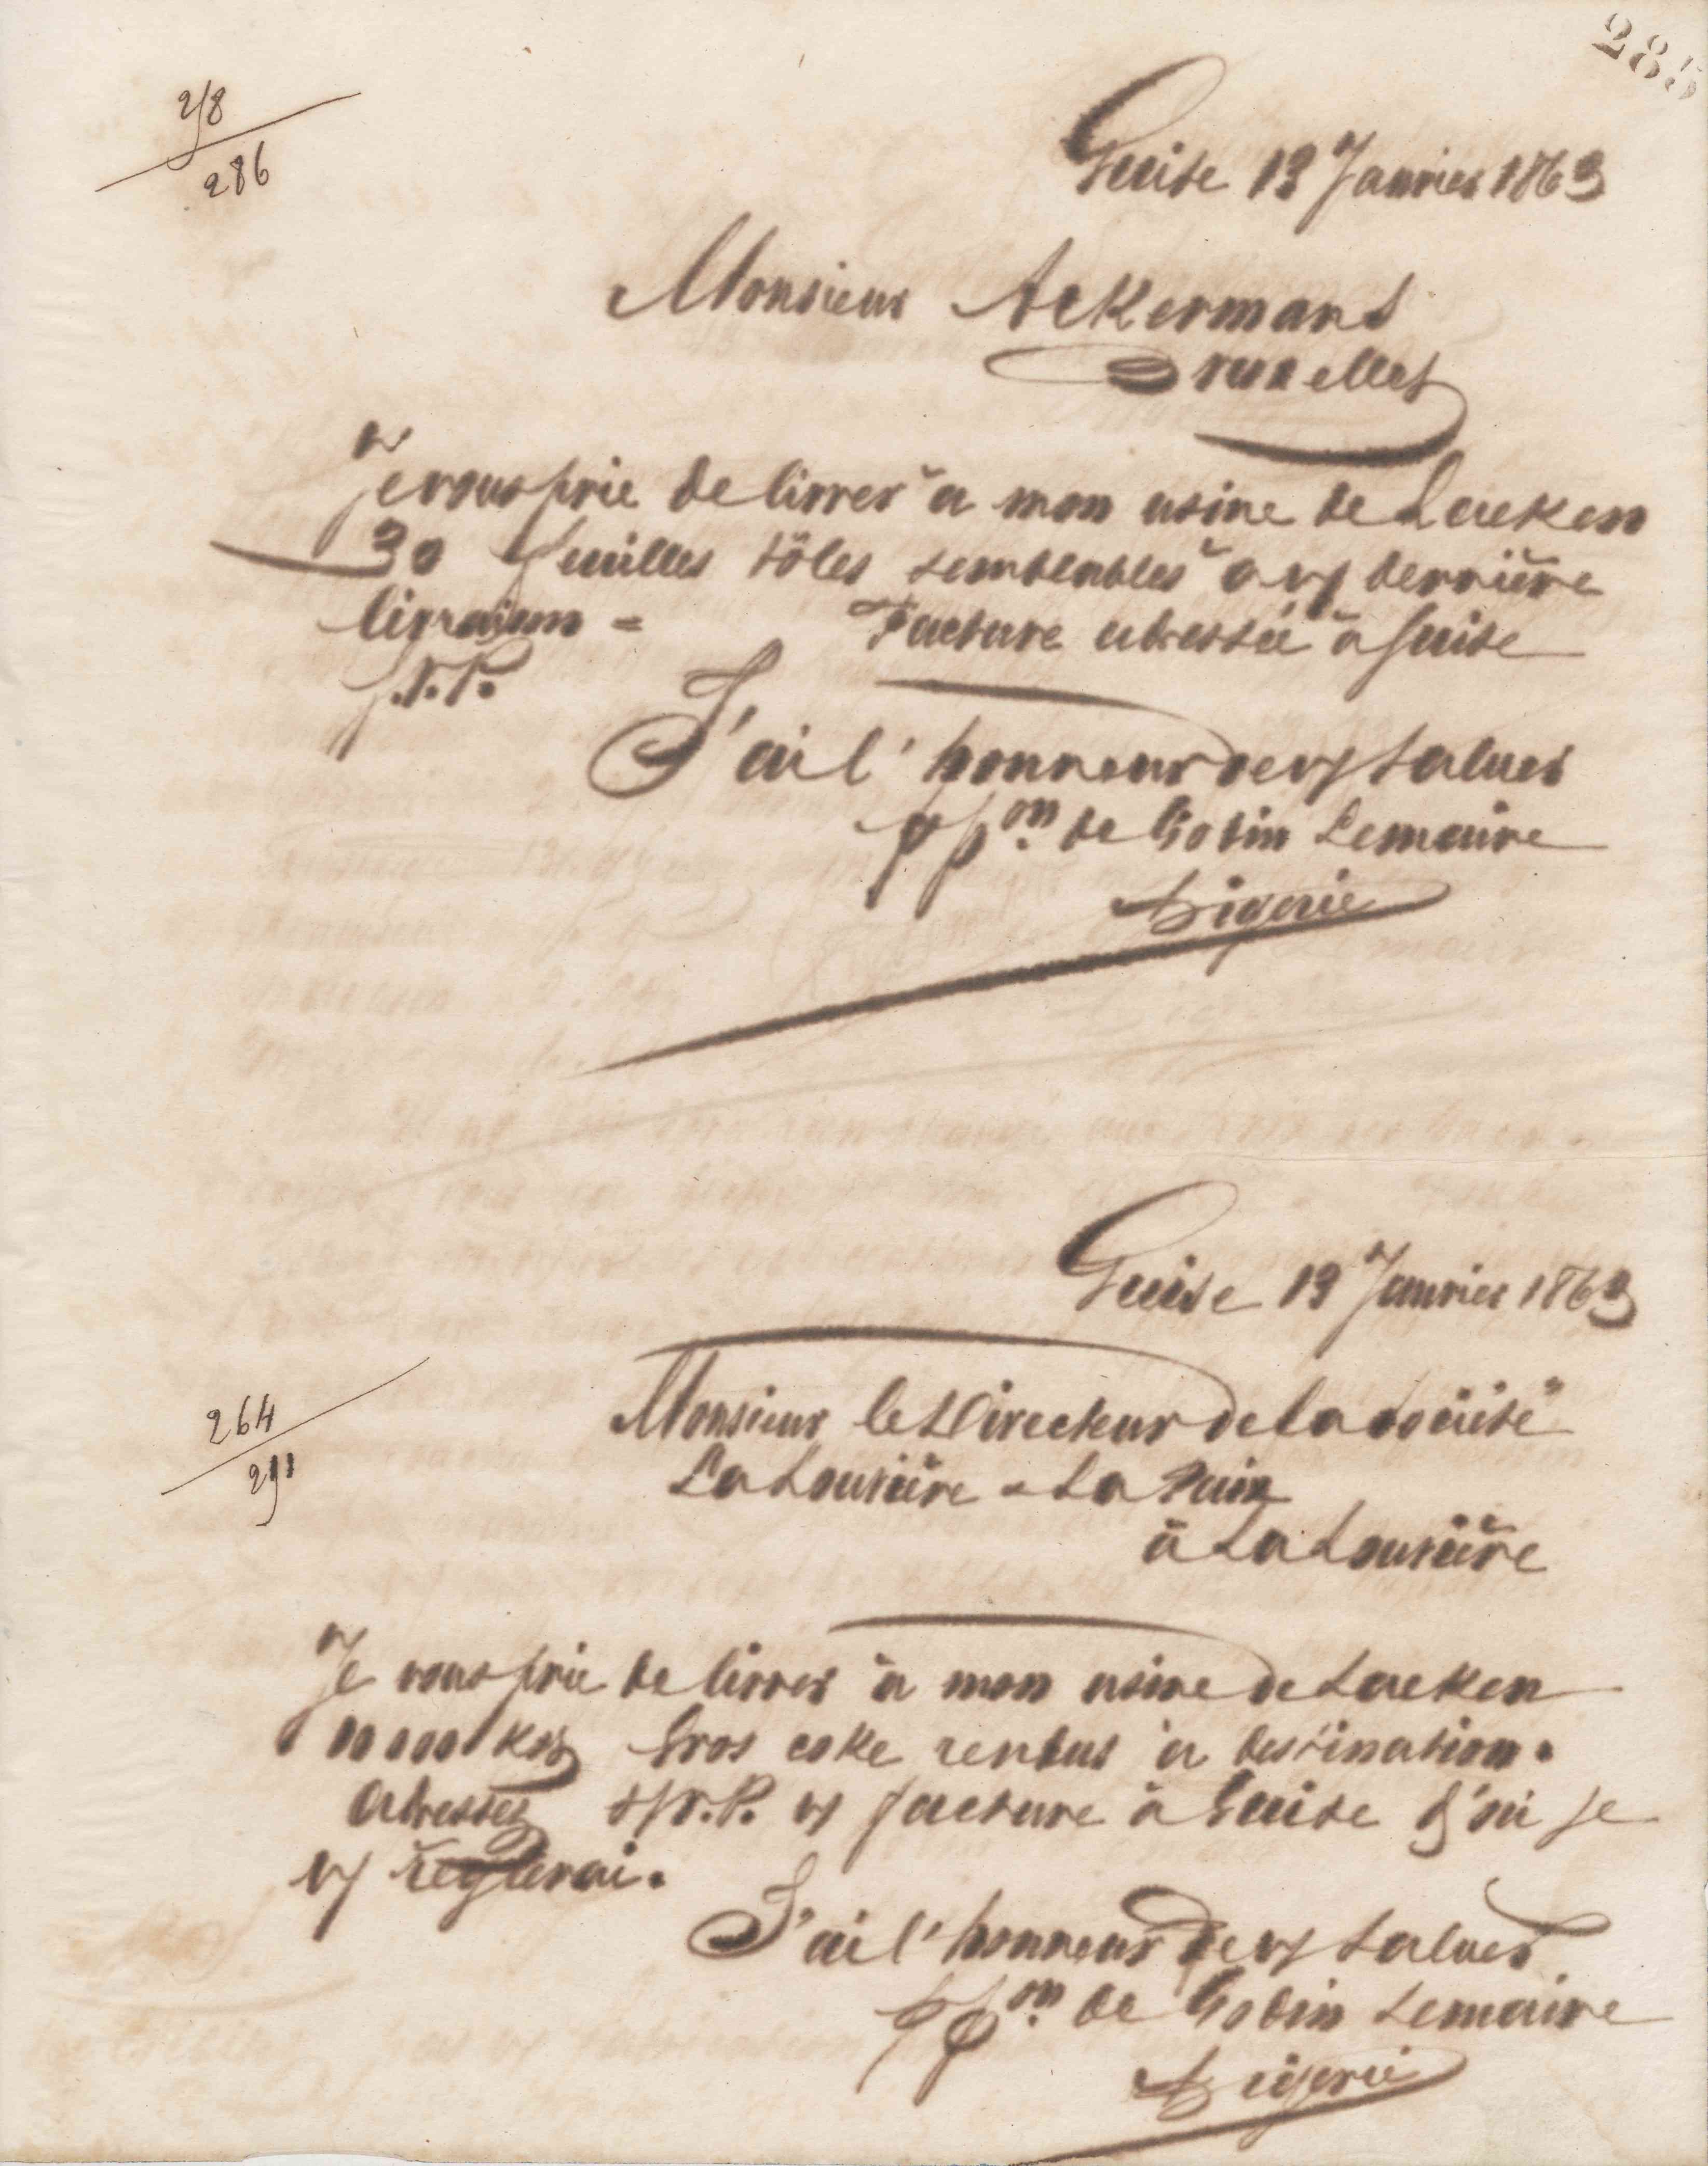 285
278
286
Guise 13 Janvier 1863
Monsieur Ackermans
Bruxelles
Je vous prie de livrer à mon usine de Laeken
30 feuilles tôles semblables à vs dernière
livraison = Facture adressée à Guise
S.V.P.
J'ai l'honneur de vs saluer
pp.on de Godin Lemaire
Guise 13 Janvier 1863
264
291
Monsieur le Directeur de la société
La Louvière & La Paix
à La Louvière
Je vous prie de livrer à mon usine de Laeken
10000 kos Gros coke rendus à destination.
adressez S.V.P. vs facture à Guise d'où je
vs réglerai.
J'ai l'honneur de vs saluer
pp.on de Godin Lemaire